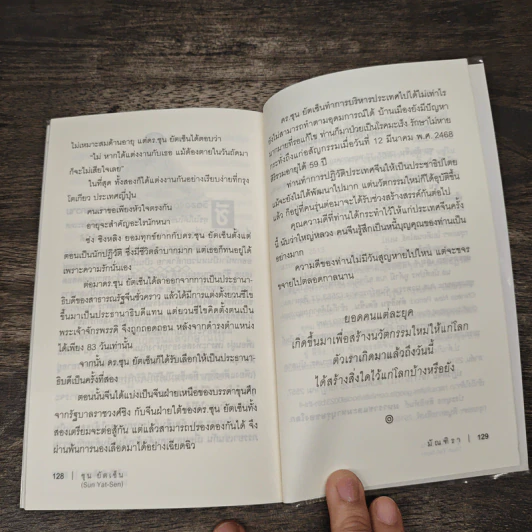 ไม่เหมาะสมด้านอายุ แต่ดร.ซุน ยัดเซ็นได้ตอบว่า
"ไม่ หากได้แต่งงานกับเธอ แม้ต้องตายในวันถัดมา
ก็จะไม่เสียใจเลย"
ในที่สุด ทั้งสองก็ได้แต่งงานกันอย่างเรียบง่ายที่กรุง
โตเกียว ประเทศญี่ปุ่น
คนเราขอเพียงหัวใจตรงกัน
อายุจะสำคัญอะไรนักหนา
ซ่ง ชิงหลิง ยอมทุกข์ยากกับดร.ซุน ยัดเซ็นตั้งแต่
ตอนเป็นนักปฏิวัติ ซึ่งมีชีวิตลำบากมาก แต่เธอก็ทนอยู่ได้
เพราะความรักนั่นเอง
ต่อมาดร.ซุน ยัดเซ็นได้ลาออกจากการเป็นประธานา-
ธิบดีของสาธารณรัฐจีนชั่วคราว แล้วได้มีการแต่งตั้งยวนซีไข
ขึ้นมาเป็นประธานาธิบดีแทน แต่ยวนซีไขคิดตั้งตนเป็น
พระเจ้าจักรพรรดิ จึงถูกถอดถอน หลังจากดำรงตำแหน่ง
ได้เพียง 83 วันเท่านั้น
จากนั้น ดร.ซุน ยัดเซ็นก็ได้รับเลือกให้เป็นประธานา-
ธิบดีเป็นครั้งที่สอง
ตอนนั้นจีนได้แบ่งเป็นจีนฝ่ายเหนือของบรรดาขุนศึก
จากรัฐบาลราชวงศ์ชิง กับจีนฝ่ายใต้ของดร.ซุน ยัดเซ็นทั้ง
สองเตรียมจะต่อสู้กัน แต่แล้วสามารถปรองดองกันได้ จึง
ผ่านพ้นการนองเลือดมาได้อย่างเฉียดฉิว
128 | ซุน ยัดเซ็น
(Sun Yat-Sen)
ดร.ซุน ยัดเซ็นทำการบริหารประเทศไปได้ไม่เท่าไร
ยังไม่สามารถทำตามอุดมการณ์ได้ บ้านเมืองยังมีปัญหา
มากมายที่รอแก้ไข ท่านก็มาป่วยเป็นโรคมะเร็ง รักษาไม่หาย
กระทั่งถึงแก่อสัญกรรมเมื่อวันที่ 12 มีนาคม พ.ศ. 2468
สิริรวมอายุได้ 59 ปี
ท่านทำการปฏิวัติประเทศจีนให้เป็นประชาธิปไตย
แม้จะยังไม่ได้พัฒนาไปมาก แต่นวัตกรรมใหม่ก็ได้อุบัติขึ้น
แล้ว ก็อยู่ที่คนรุ่นต่อมาจะได้รับช่วงสร้างสรรค์กันต่อไป
คุณความดีที่ท่านได้กระทำไว้ให้แก่ประเทศจีนครั้ง
นี้ นับว่าใหญ่หลวง คนจีนรู้สึกเป็นหนี้บุญคุณของท่านเป็น
อย่างมาก
ความดีของท่านไม่มีวันสูญหายไปไหน แต่จะขจร
ขจายไปตลอดกาลนาน
ยอดคนแต่ละยุค
เกิดขึ้นมาเพื่อสร้างนวัตกรรมใหม่ให้แก่โลก
ตัวเราเกิดมาแล้วถึงวันนี้
ได้สร้างสิ่งใดไว้แก่โลกบ้างหรือยัง
มัณฑิรา | 129